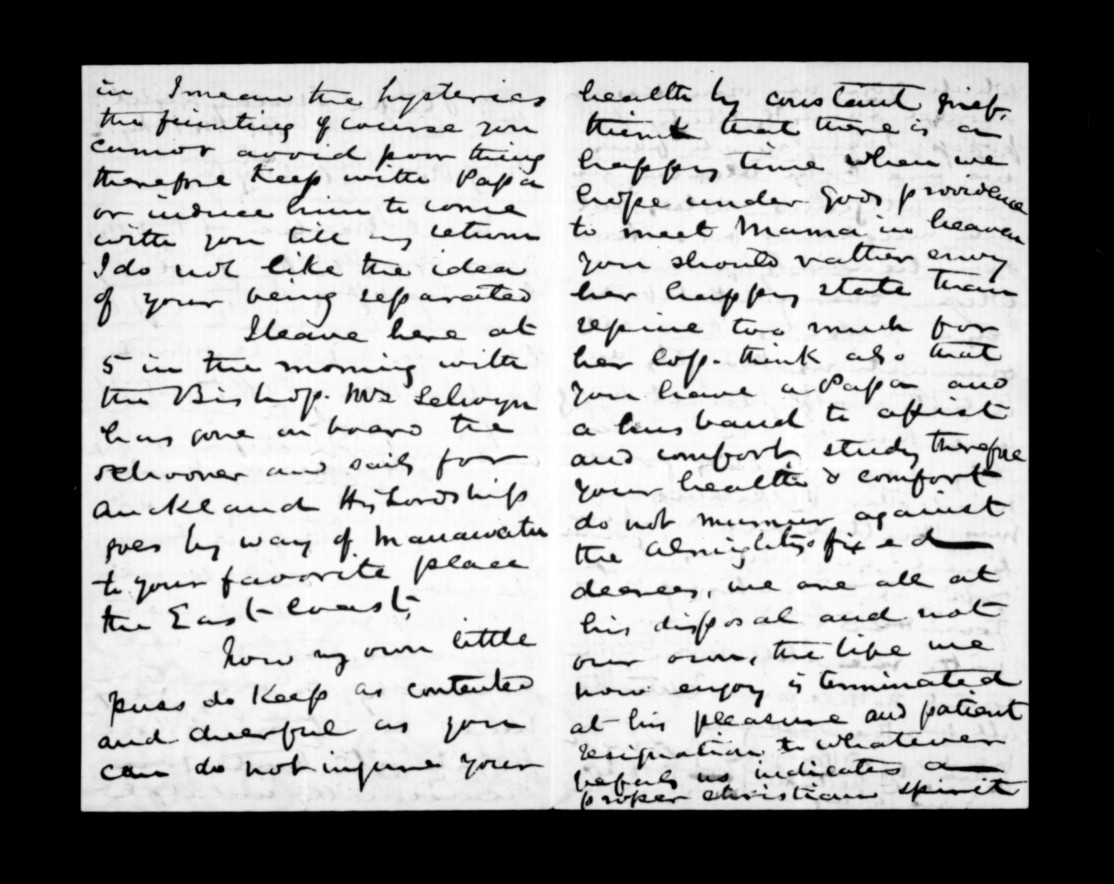 in I mean the hysterics
the fainting of course you
cannot avoid poor thing
therefore Keep with Papa
or induce him to come
with you till my return
I do not like the idea
of your being separated
I leave here at
5 in the morning with
the Bishop. Mrs Selwyn
has gone on board the
schooner and sails for
Auckland His Lordship
goes by way of Manawatu
to your favorite place
the East Coast
Now my own little
puss do Keep as contented
and cheerful as you
can do not injure your
health by constant grief.
think that there is a
happy time when we
hope under Gods providence
to meet Mama in heaven
you should rather envy
her happy state than
repine too much for
her loss. think also that
you have a Papa and
a husband to assist
and comfort, study therefore
your health & comfort
do not murmur against
the Almightys fixed
decrees, we are all at
his disposal and not
our own, the life we
now enjoy is terminated
at his pleasure and patient
resignation to whatever
befals us indicates a
proper christian spirit